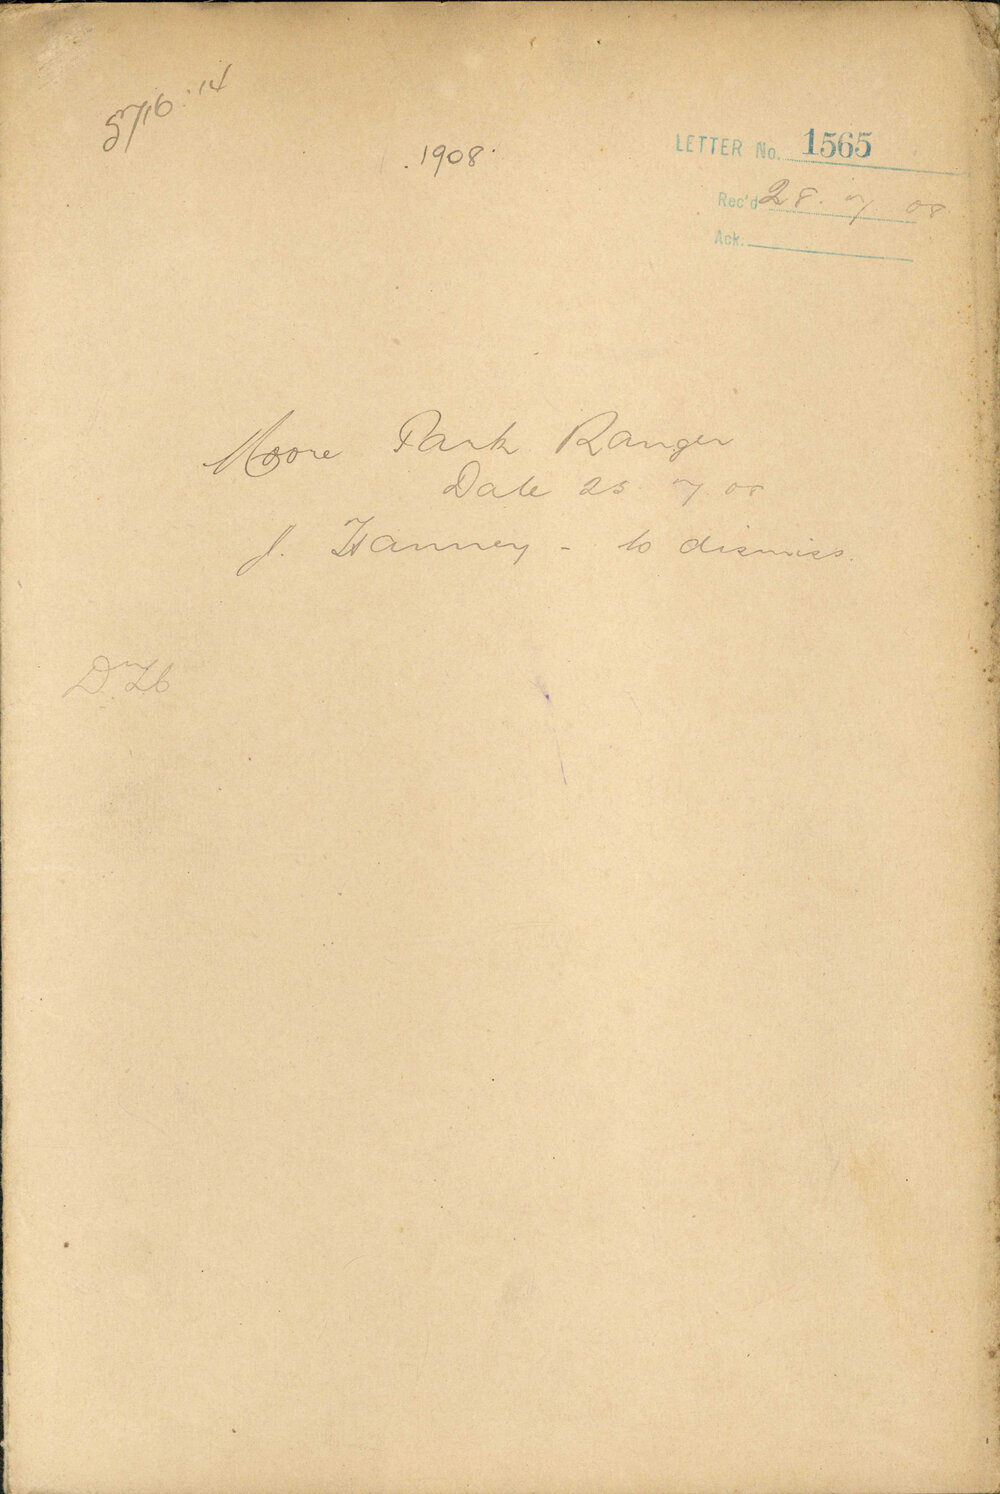 5716:14
.1908.
LETTER No. 1565
Rec'd 28. 7 08
Ack.
Moore Park Ranger
Date 23. 7. 08
J. Hanney - to dismiss.